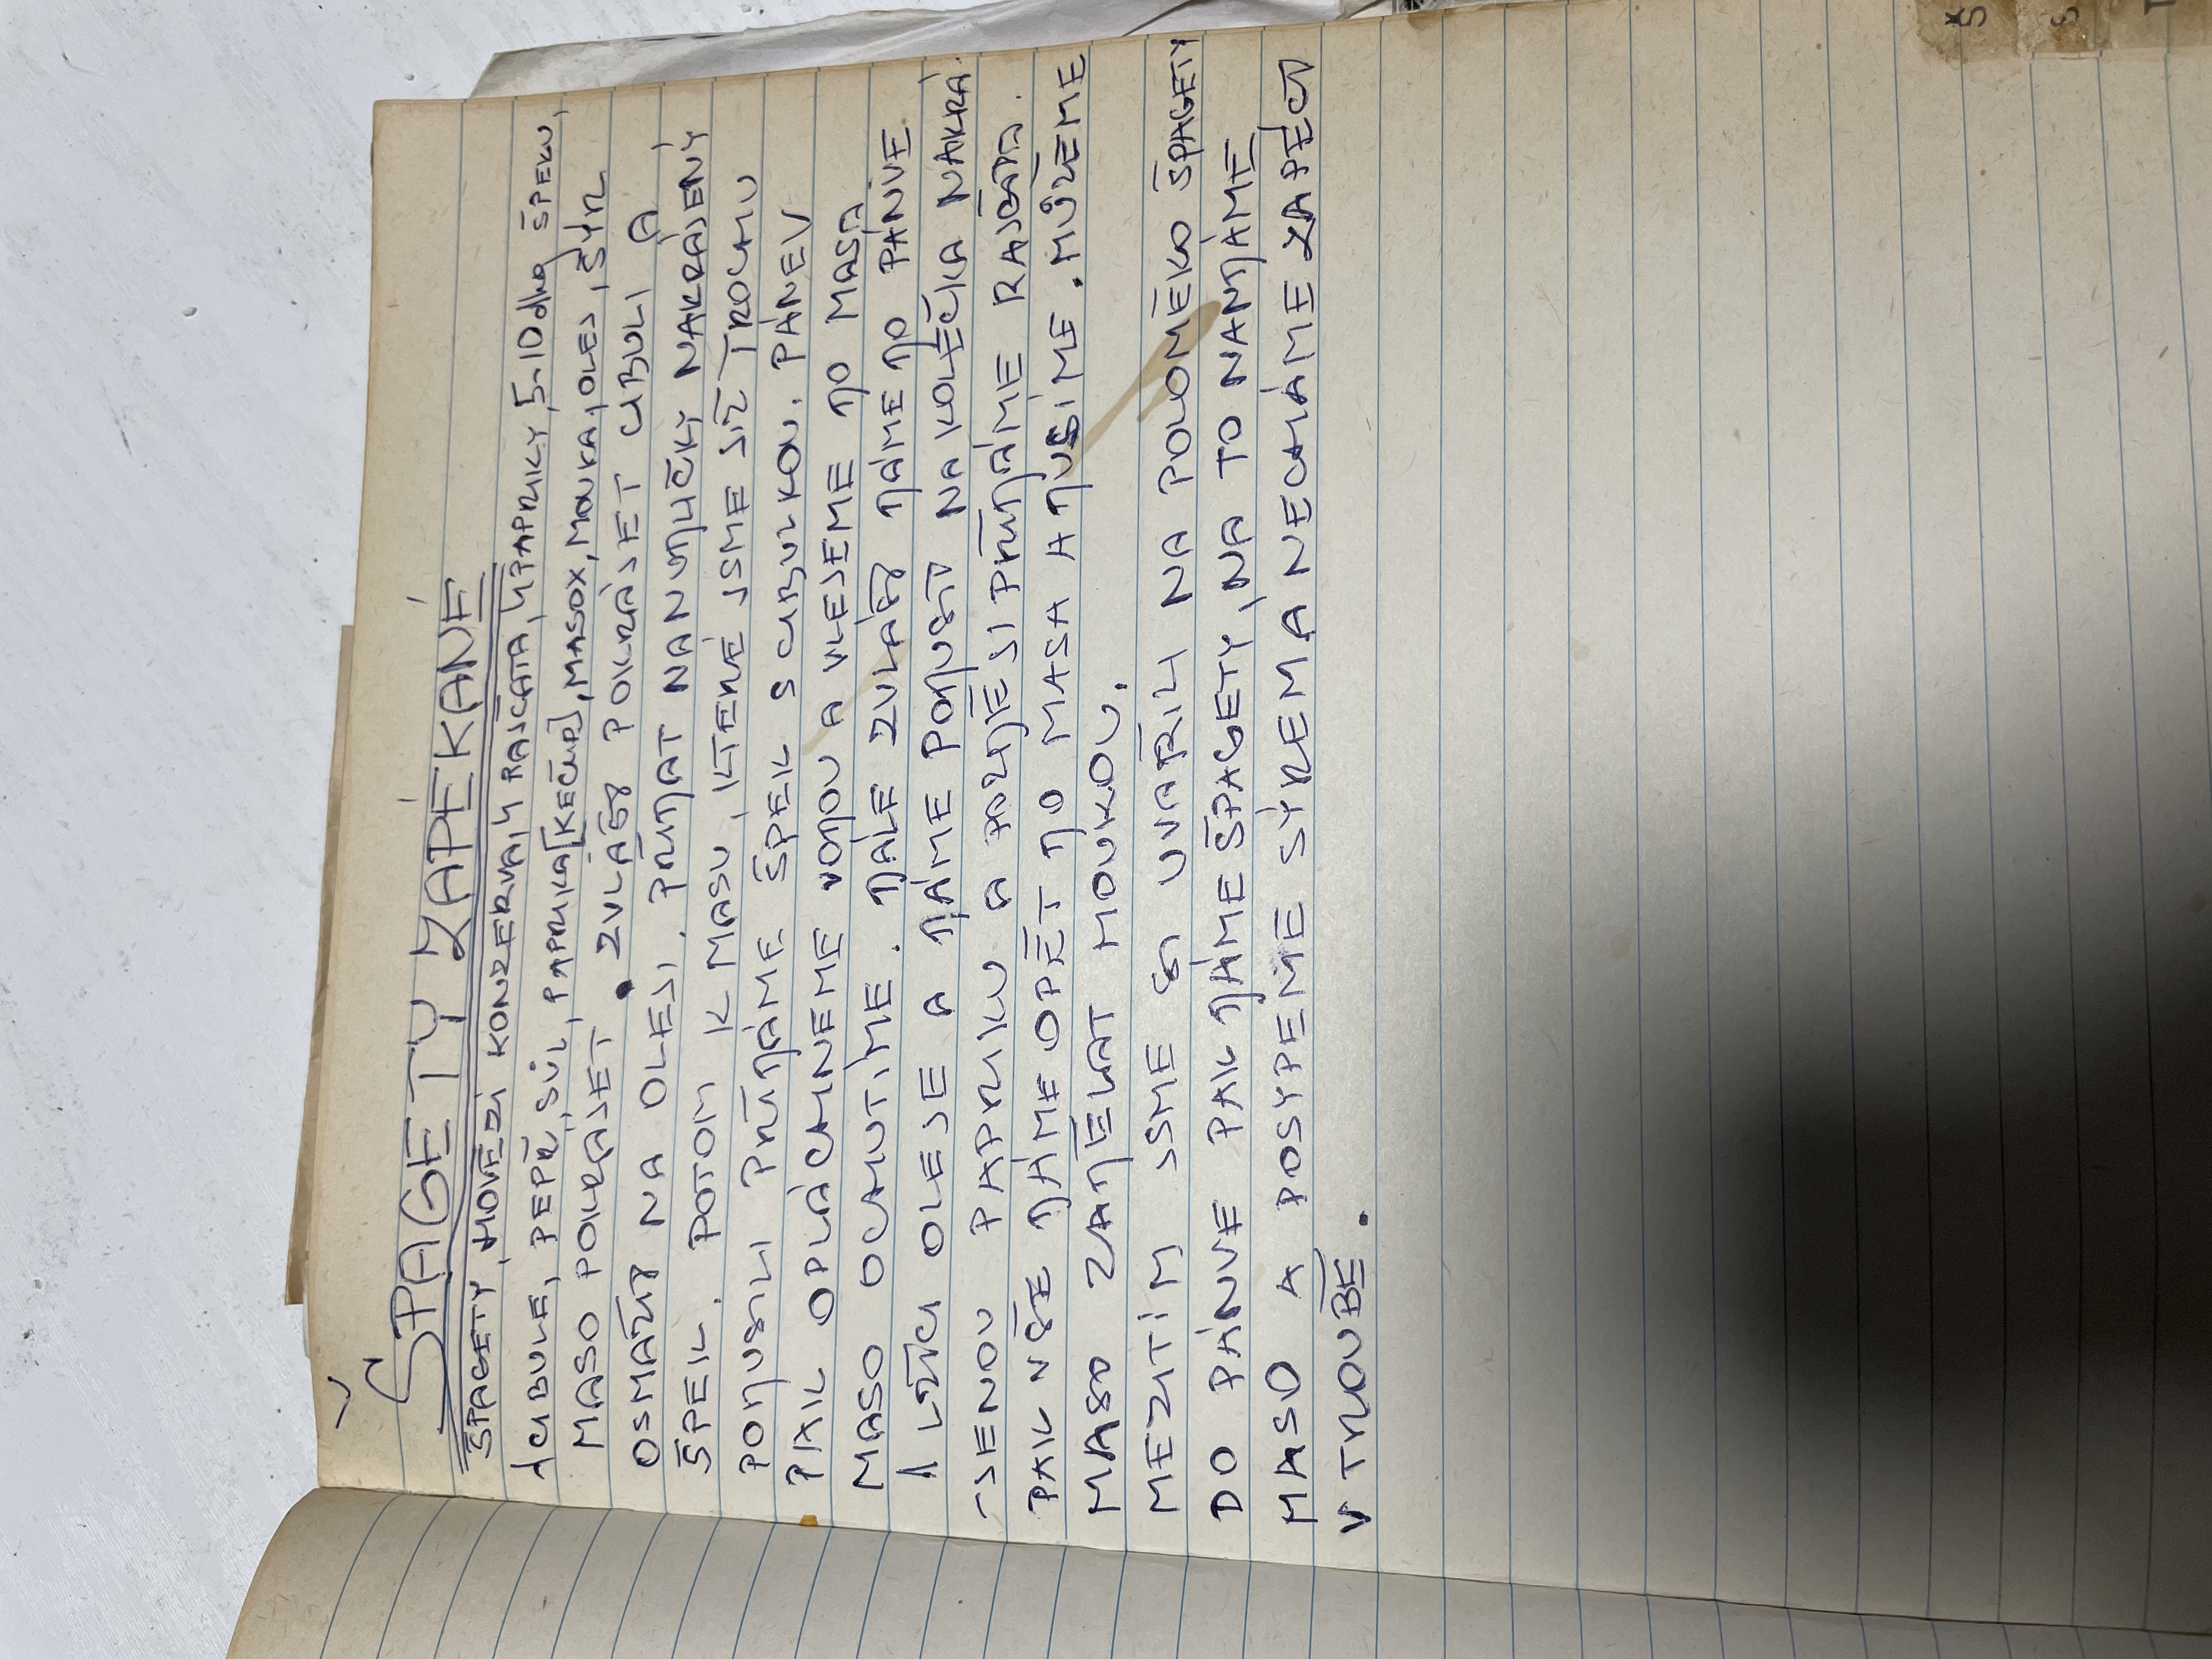 ŠPAGETY ZAPÉKANÉ
ŠPAGETY, HOVĚZÍ KONZERVA, 4 RAJČATA, 4 PAPRIKY, 5-10 dkg ŠPEKU,
1 CIBULE, PEPŘ, SŮL, PAPRIKA [KEČUP], MASOX, MOUKA, OLEJ, SÝR
MASO POKRÁJET. ZVLÁŠŤ POKRÁJET CIBULI A
OSMAŽIT NA OLEJI. PŘIDAT NA NUDLIČKY NAKRÁJENÝ
ŠPEK. POTOM K MASU, KTERÉ JSME JIŽ TROCHU
PODUSILI PŘIDÁME ŠPEK S CIBULKOU. PÁNEV
PAK OPLÁCHNEME VODOU A VLEJEME DO MASA.
MASO OCHUTÍME. DÁLE ZVLÁŠŤ DÁME DO PÁNVE
1 LŽÍCI OLEJE A DÁME PODUSIT NA KOLEČKA NAKRÁ-
-JENOU PAPRIKU A POZDĚJI PŘIDÁME RAJČATA.
PAK VŠE DÁME OPĚT DO MASA A DUSÍME. MŮŽEME
MASO ZADĚLAT MOUKOU.
MEZITÍM JSME SI UVAŘILI NA POLOMĚKO ŠPAGETY
DO PÁNVE PAK DÁME ŠPAGETY, NA TO NANDÁME
MASO A POSYPEME SÝREM A NECHÁME ZAPÉCT
V TROUBĚ.
Š
S
T